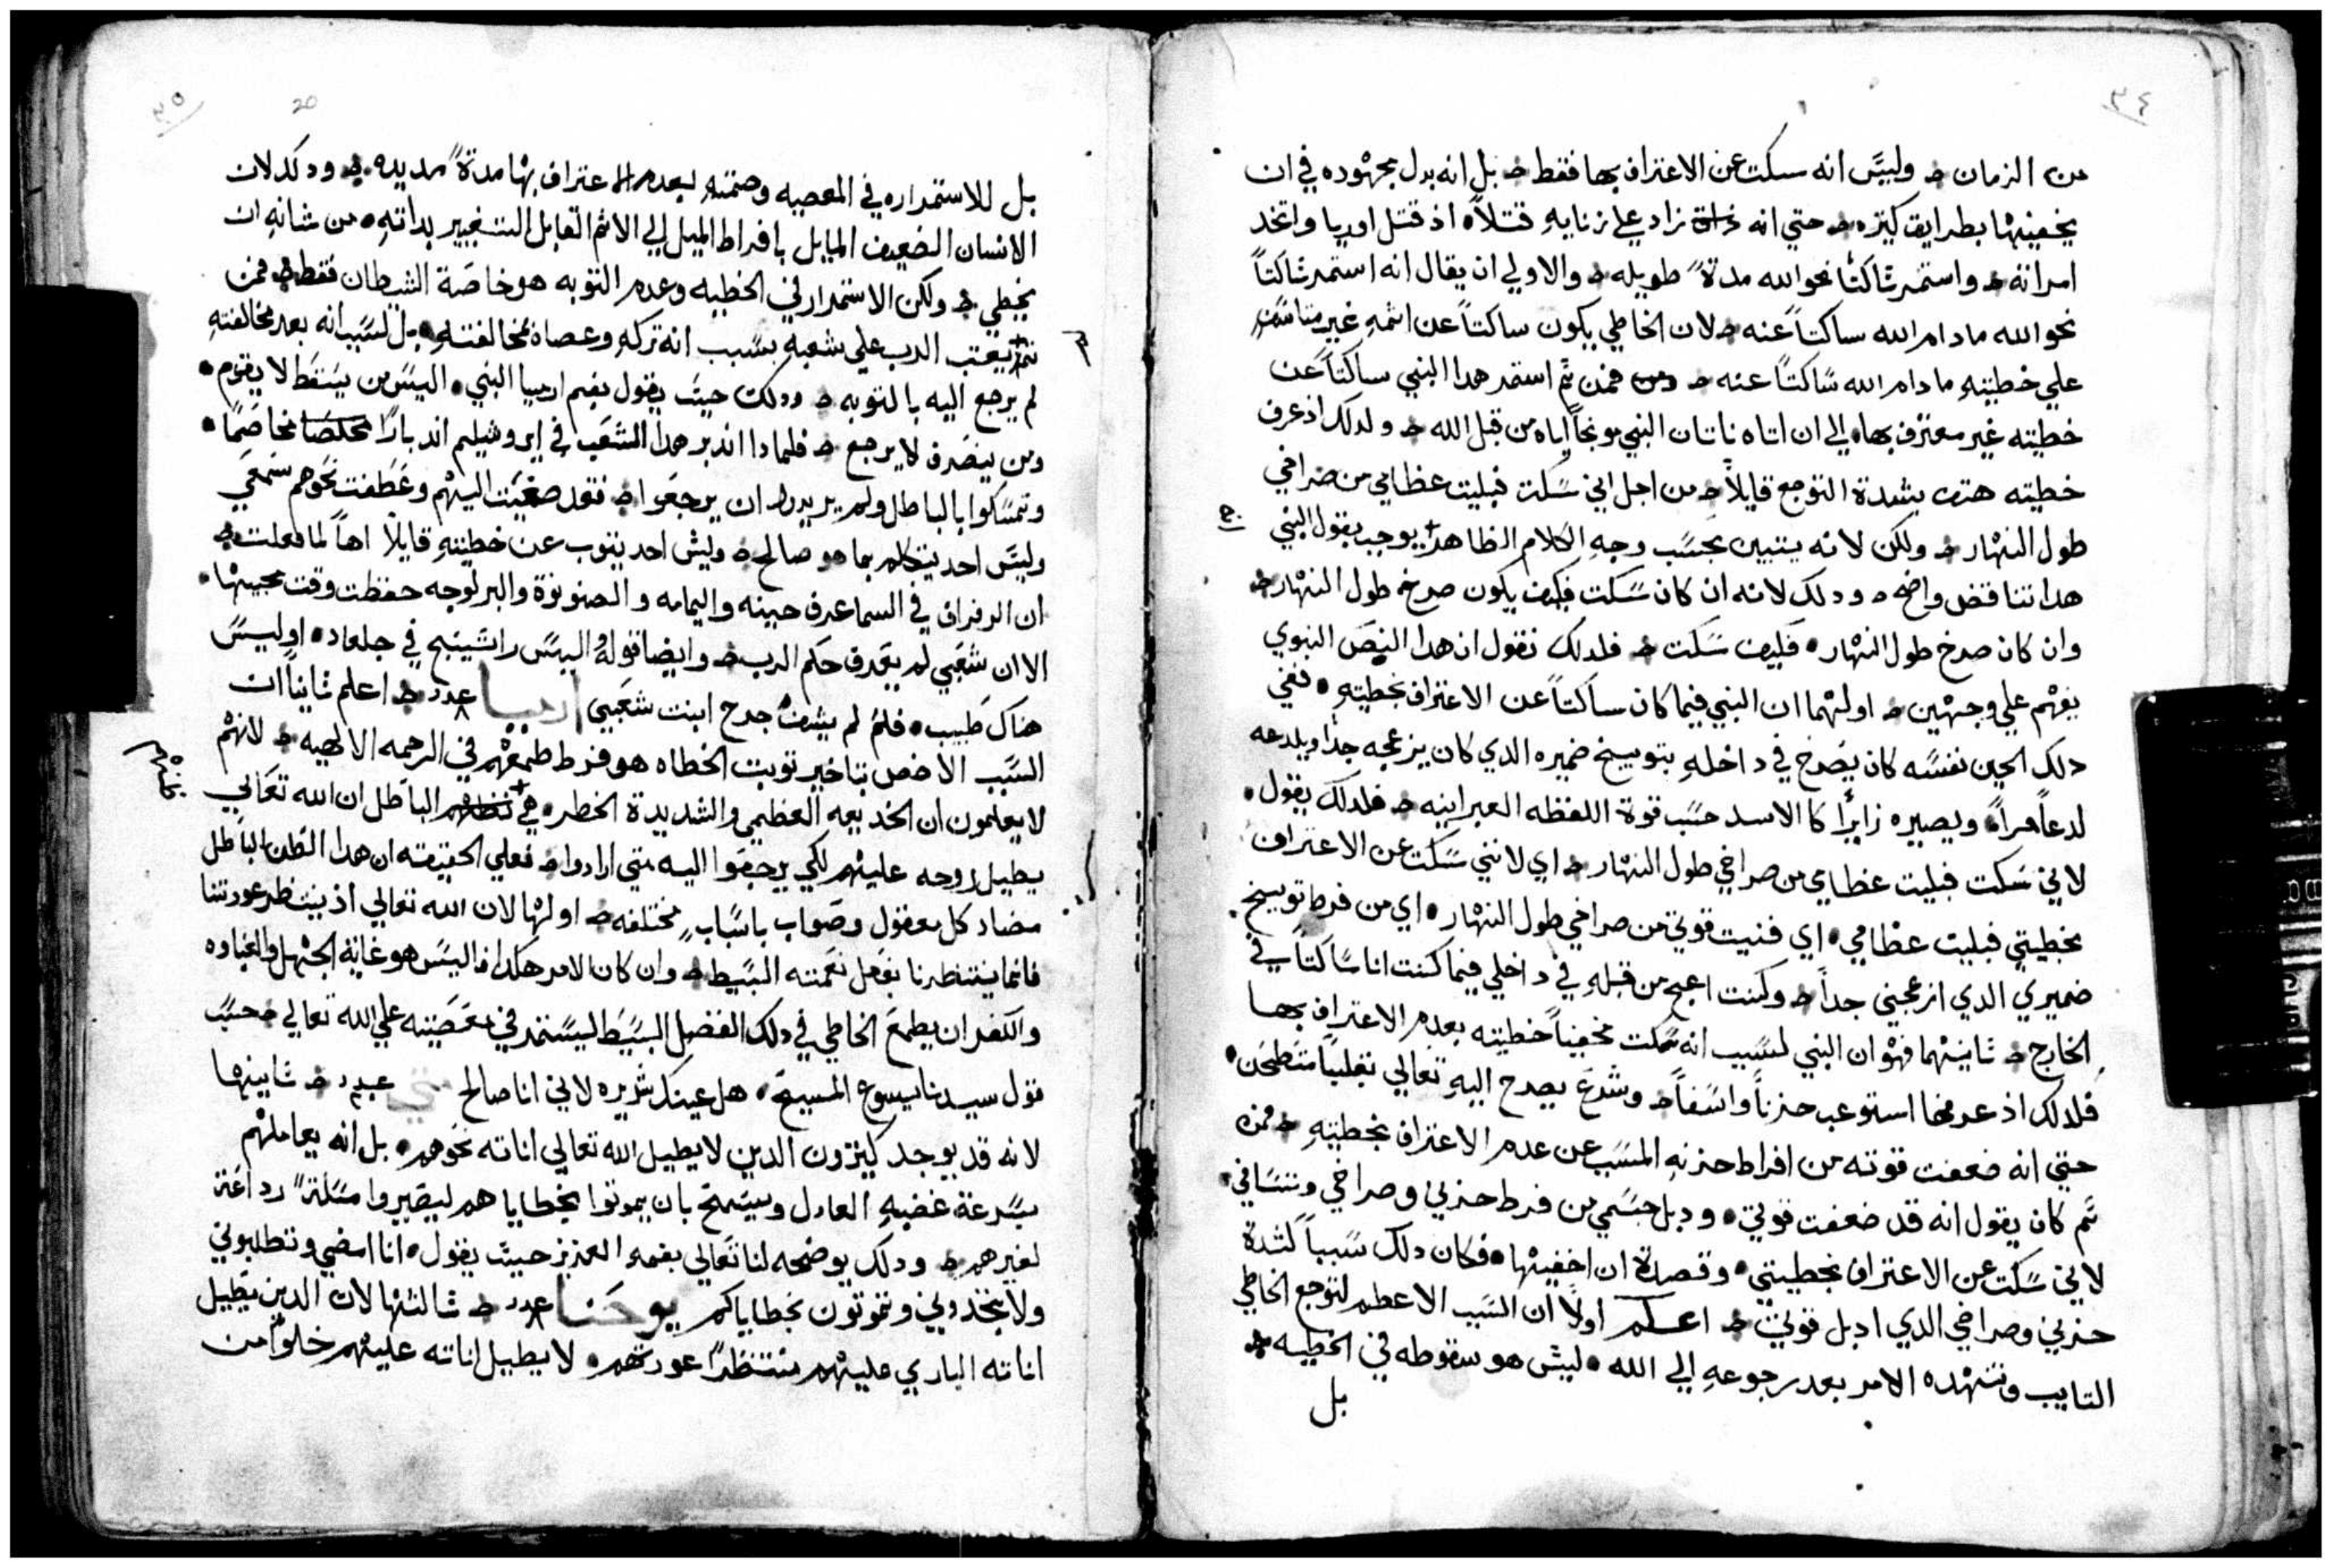 ٣٤
من الزمان ٭ وليسَ انه سكت عن الاعتراف بها فقط ٭ بل انه بدل مجهوده في ان
يخفيها بطرايق كتيره ٭ حتي انه زاد علي زنايهِ قتلاً اذ قتل اوريا واتخد
امراته ٭ واستمر ساكتاً نحو الله مدةً طويله ٭ والاولي ان يقال انه استمر ساكتاً
نحو الله مادام الله ساكتاً عنه ٭ لان الخاطي يكون ساكتاً عن اثمهِ غير
علي خطيتهِ ما دام الله ساكتاً عنه ٭ فمن ثم استمر هدا النبي ساكتاً عن
خطيته غير معترف بها الي ان اتاه ناتان النبي موبخاً اياه من قبل الله ٭ ولدلك اذ عرف
خطيته هتف بشدة التوجع قايلاً ٭ من اجل اني سَكت فبليت عظامي من صراخي
طول النهار ٭ ولكن لانه يتبين بحسَب وجهِ الكلام الظاهر يوجد بقول النبي
هدا تناقض واضح ٭ ودلك لانه ان كان سَكت فكيف يكون صرخ طول النهار ٭
وان كان صرخ طول النهار • فكيف سَكت ٭ فلدلك نقول ان هدا النصَ النبوي
يفهم علي وجهين ٭ اولهما ان النبي فيما كان ساكتاً عن الاعتراف بخطيتهِ • ففي
دلك الحين نفسَه كان يصَرخ في داخلهِ بتوبيخ ضميره الدي كان يزعجه جداً ويلدعه
لدعاً مراً ويصيره زايراً كا الاسد حسَب قوة اللفظه العبرانيه ٭ فلدلك يقول •
لاني سَكت فبليت عظامي من صراخي طول النهار ٭ اي لانني سَكت عن الاعتراف
بخطيتي فبليت عظامي • اي فنيت قوتي من صراخي طول النهار • اي من فرط توبيخ
ضميري الدي ازعجني جداً ٭ وكنت اعج من قبلهِ في داخلي فيما كنت انا ساكتاً في
الخارج ٭ ثانيهما فهو ان النبي لسَبب انه سَكت مخفياً خطيته بعدم الاعتراف بها
فلدلك اذ عرفها استوعب حزناً واسَفاً ٭ وشرعَ يصرح اليهِ تعالي بقلبٍ منَطحَن •
حتي انه ضعفت قوته من افراط حزنهِ المسَبب عن عدم الاعتراف بخطيتهِ ٭ فمن
ثم كان يقول انه قد ضعفت قوتي • ودبل جسَمي من فرط حزني وصراخي
لاني سَكت عن الاعتراف بخطيتي • وقصدت ان اخفيها • فكان دلك سَبباً لشدة
حزني وصراخي الدي ادبل قوتي ٭ اعلم اولاً ان السَبب الاعظم لتوجع الخاطي
التايب وتنهده الامر بعد رجوعهِ الي الله • ليسَ هو سقوطه في الخطيه ٭
بل
٣٥
20
بل للاستمراره في المعصيه وصمتهِ بعدم الاعتراف بها مدةً مديده ٭ ودلك لان
الانسان الضعيف المايل بافراط الميل الي الاثم القابل التغيير بداتهِ • من شانهِ ان
يخطي ٭ ولكن الاستمرار في الخطيه وعدم التوبه هو خاصَة الشيطان فقط ٭ فمن
ثم يعتب الرب علي شعبهِ بسَبب انه تركهِ وعصاه بمخالفتهِ • بل لسَبب انه بعد مخالفتهِ
لم يرجع اليه بالتوبه ٭ ودلك حيث يقول بفم ارميا النبي • اليسَ من يسَقط لا يقوم •
ومن ينصَرف لا يرجع ٭ فلمادا اندبر هدا الشعَب في ايروشليم اندباراً مخاصَماً •
وتمسَكوا بالباطل ولم يريدوا ان يرجعَوا ٭ فقد صغيَت اليهم وعَطفت نحَوهم سَمعَي
وليسَ احد يتكلم بما هو صالح ٭ وليسَ احد يتوب عن خطيتهِ قايلاً اهاً لما فعلت ٭
ان الرفراف في السما عرف حينه واليمامه والصنونوة والبرلوجه حفظت وقت مجيها •
الا ان شعَبي لم يعَرف حكم الرب ٭ وايضا قوله اليسَ راتينج في جلعاد • او ليسَ
هناك طبيب • فلمَ لم يشفَ جرح ابنت شعَبي ارميا عدد ٨ ٭ اعلم ثانياً ان
السَبب الاخص بتاخير توبت الخطاه هو فرط طمعَهم في الرحمه الالهيه ٭ لانهم
لا يعلمون ان الخديعه العظمي والشديدة الخطر • هي الباطل ان الله تعَالي
يطيل روحه عليهم لكي يرجعَوا اليه متي ارادوا ٭ فعلي الحقيقه ان هدا الظن الباطل
مضاد كل معقول وصَواب باسَباب مختلفه ٭ اولها لان الله تعالي اذ ينتظر عودتنا
فانما ينتظرنا بفعَل نعَمته البسَيط ٭ وان كان الامر هكدا فاليسَ هو غاية الجهل والغباوه
والكفر ان يطمعَ الخاطي في دلك الفضل البسَيَط ليسَتمر في معَصَيته علي الله تعالي ٭ حسَب
قول سيدنا يسوع المسيح • هل عينك شريره لاني انا صالح متي عدد ٢٠ ٭ ثانيها
لانه قد يوجد كتيرون الدين لا يطيل الله تعالي اناته نحَوهم • بل انه يعاملهم
بسَرعة غضبهِ العادل ويسَمح بان يموتوا بخطاياهم ليصَيروا مسَلةً رداعَة
لغيرهم ٭ ودلك يوضحه لنا تعَالي بفمهِ العزيز حيث يقول • انا امضي وتطلبوني
ولا تجدوني وتموتون بخطاياكم يوحَنا عدد ٨ ٭ ثالثها لان الدين يطيل
اناته الباري عليهم منتظراً عودتهم • لا يطيل اناته عليهم خلواً من